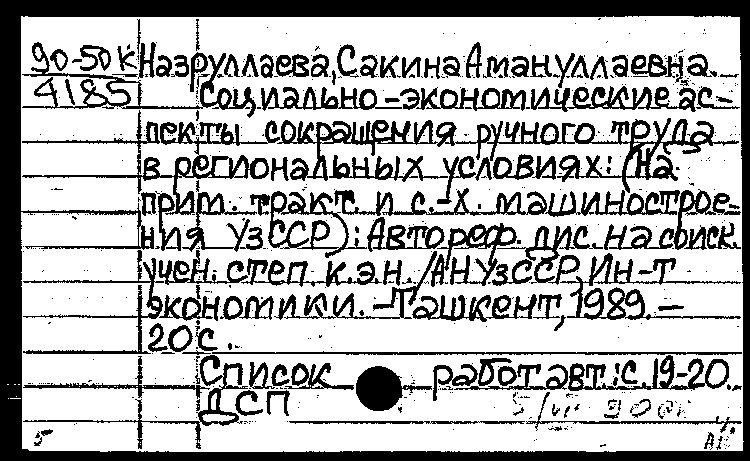 90-50К
4185
Назруллаева, Сакина Амануллаевна.
Социально-экономические ас-
пекты сокращения ручного труда
в региональных условиях: (На
прим. тракт. и с.-х. машинострое-
ния УзССР): Автореф. дис. на соиск.
учен. степ. к.э.н. /АН УзССР, Ин-т
экономики. - Ташкент, 1989. -
20 с.
Список работ авт.: с. 19-20.
ДСП
5